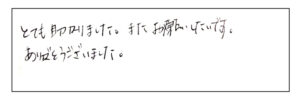 とても助かりました。また お願いしたいです。
ありがとうございました。